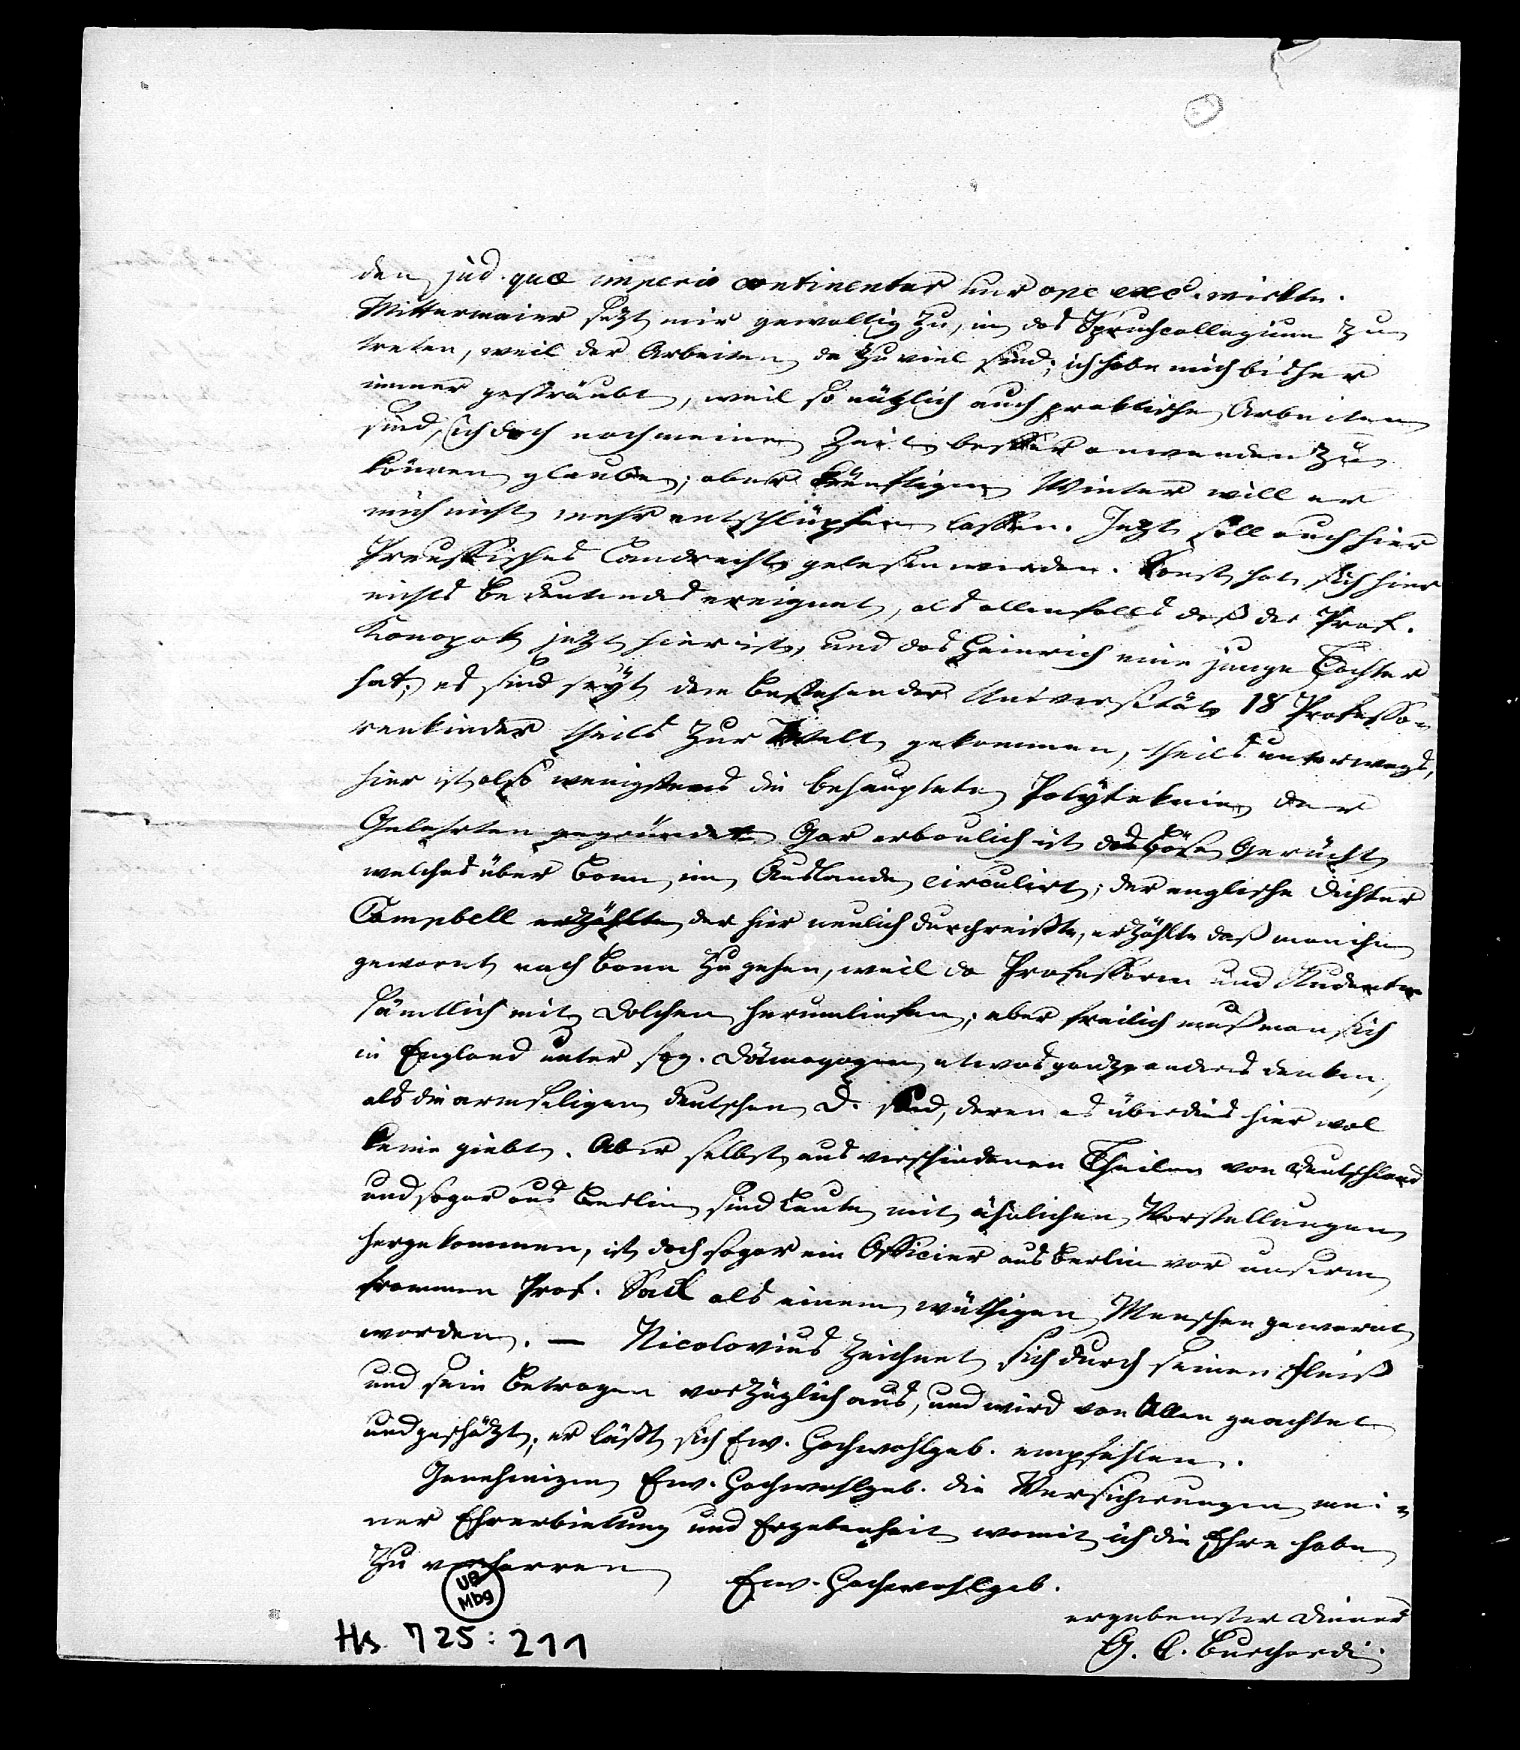 den jud. quæ imperio continentur nur ope exc. wirkte.
Mittermaier sezt mir gewaltig zu, in das Spruchcollegium zu
treten, weil der Arbeiten da zu viel sind; ich habe mich bisher
immer gesträubt, weil so nüzlich auch praktische Arbeiten
sind, ich doch noch meine Zeit besser anwenden zu
können glaube; aber künftigen Winter will er
mich nicht mehr entschlüpfen lassen. Jezt soll auch hier
Preussisches Landrecht gelesen werden. Sonst hat sich hier
nichts bedeutendes ereignet, als allenfalls daß der Prof.
Konopak jezt hier ist, und das Heinrich eine junge Tochter
hat; es sind seyt dem Bestehen der Universität 18 Professo-
renkinder theils zur Welt gekommen, theils unterwegs,
hier ist also wenigstens die behauptete Polyteknie der
Gelehrten gegründet. Gar erbaulich ist das böse Gerücht
welches über Bonn im Auslande circulirt; der englische Dichter
Campbell erzählte der hier neulich durchreiste, erzählte daß man ihn
gewarnt nach Bonn zu gehen, weil da Professoren und Studenten
sämtlich mit Dolchen herumliefen; aber freilich muß man sich
in England unter sog. Dämagogen etwas ganz anders denken,
als die armseligen deutschen D. sind, deren es überdies hier wol
keine giebt. Aber selbst aus verschiedenen Theilen von Deutschland
und sogar aus Berlin sind Leute mit ähnlichen Vorstellungen
hergekommen, ist doch sogar ein Officier aus Berlin vor unserm
frommen Prof. Sack als einem wüthigen Menschen gewarnt
worden. — Nicolovius zeichnet sich durch seinen Fleiß
und sein Betragen vorzüglich aus, und wird von Allen geachtet
und geschäzt; er läßt sich Ew. Hochwohlgeb. empfehlen.
Genehmigen Ew. Hochwohlgeb. die Versicherungen mei-
ner Ehrerbietung und Ergebenheit womit ich die Ehre habe
zu verharren
Ew. Hochwohlgeb.
ergebenster Diener
G. C. Burchardi
UB
Mbg
Hs. 725: 211